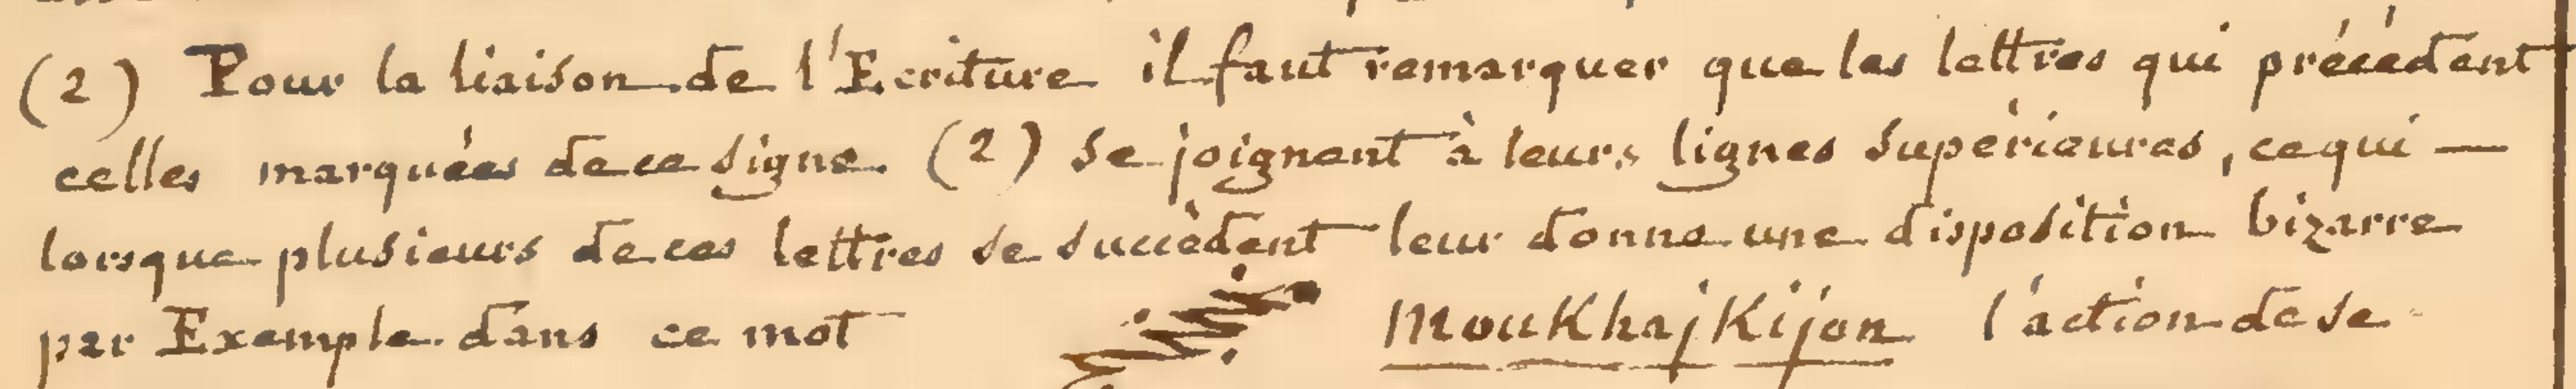 (2) Pour la liaison de l'Ecriture il faut remarquer que les lettres qui précédent
celles marquées de ce signe. (2) se joignent à leurs lignes supérieures, ce qui —
lorsque plusieurs de ces lettres se succèdent leur donne une disposition bizarre
par Exemple dans ce mot MouKhajKijon l'action de se